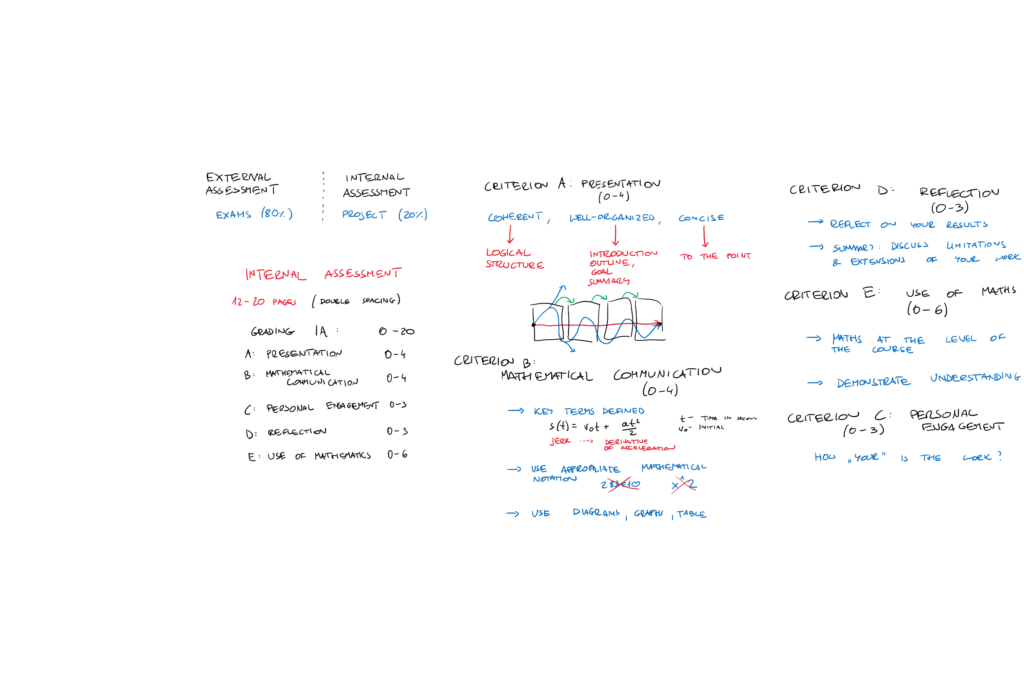 EXTERNAL
ASSESSMENT
EXAMS (80%)
INTERNAL
ASSESSMENT
PROJECT (20%)
INTERNAL ASSESSMENT
12-20 PAGES (DOUBLE SPACING)
GRADING IA: 0-20
A: PRESENTATION 0-4
B: MATHEMATICAL
COMMUNICATION 0-4
C: PERSONAL ENGAGEMENT 0-3
D: REFLECTION 0-3
E: USE OF MATHEMATICS 0-6
CRITERION A: PRESENTATION
(0-4)
COHERENT, WELL-ORGANIZED, CONCISE
LOGICAL
STRUCTURE
INTRODUCTION
OUTLINE,
GOAL
SUMMARY
TO THE POINT
CRITERION B:
MATHEMATICAL COMMUNICATION
(0-4)
→ KEY TERMS DEFINED
s(t) = v₀t + at²/2
t - TIME IN
v₀ - INITIAL
JERK ---> DERIVATIVE
OF ACCELERATION
→ USE APPROPRIATE MATHEMATICAL
NOTATION
x^2
→ USE DIAGRAMS, GRAPHS, TABLE
CRITERION D: REFLECTION
(0-3)
→ REFLECT ON YOUR RESULTS
→ SUMMARY: DISCUSS LIMITATIONS
& EXTENSIONS OF YOUR WORK
CRITERION E: USE OF MATHS
(0-6)
→ MATHS AT THE LEVEL OF
THE COURSE
→ DEMONSTRATE UNDERSTANDING
CRITERION C: PERSONAL
(0-3) ENGAGEMENT
HOW „YOUR" IS THE WORK?